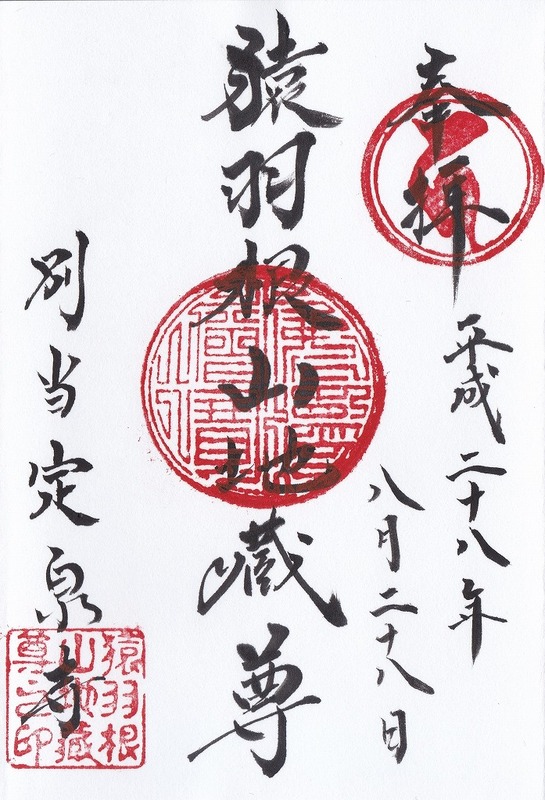 奉拝
平成二十八年
八月二十八日
猿羽根山地蔵尊
別当定泉寺
猿羽根
山地蔵
尊之印